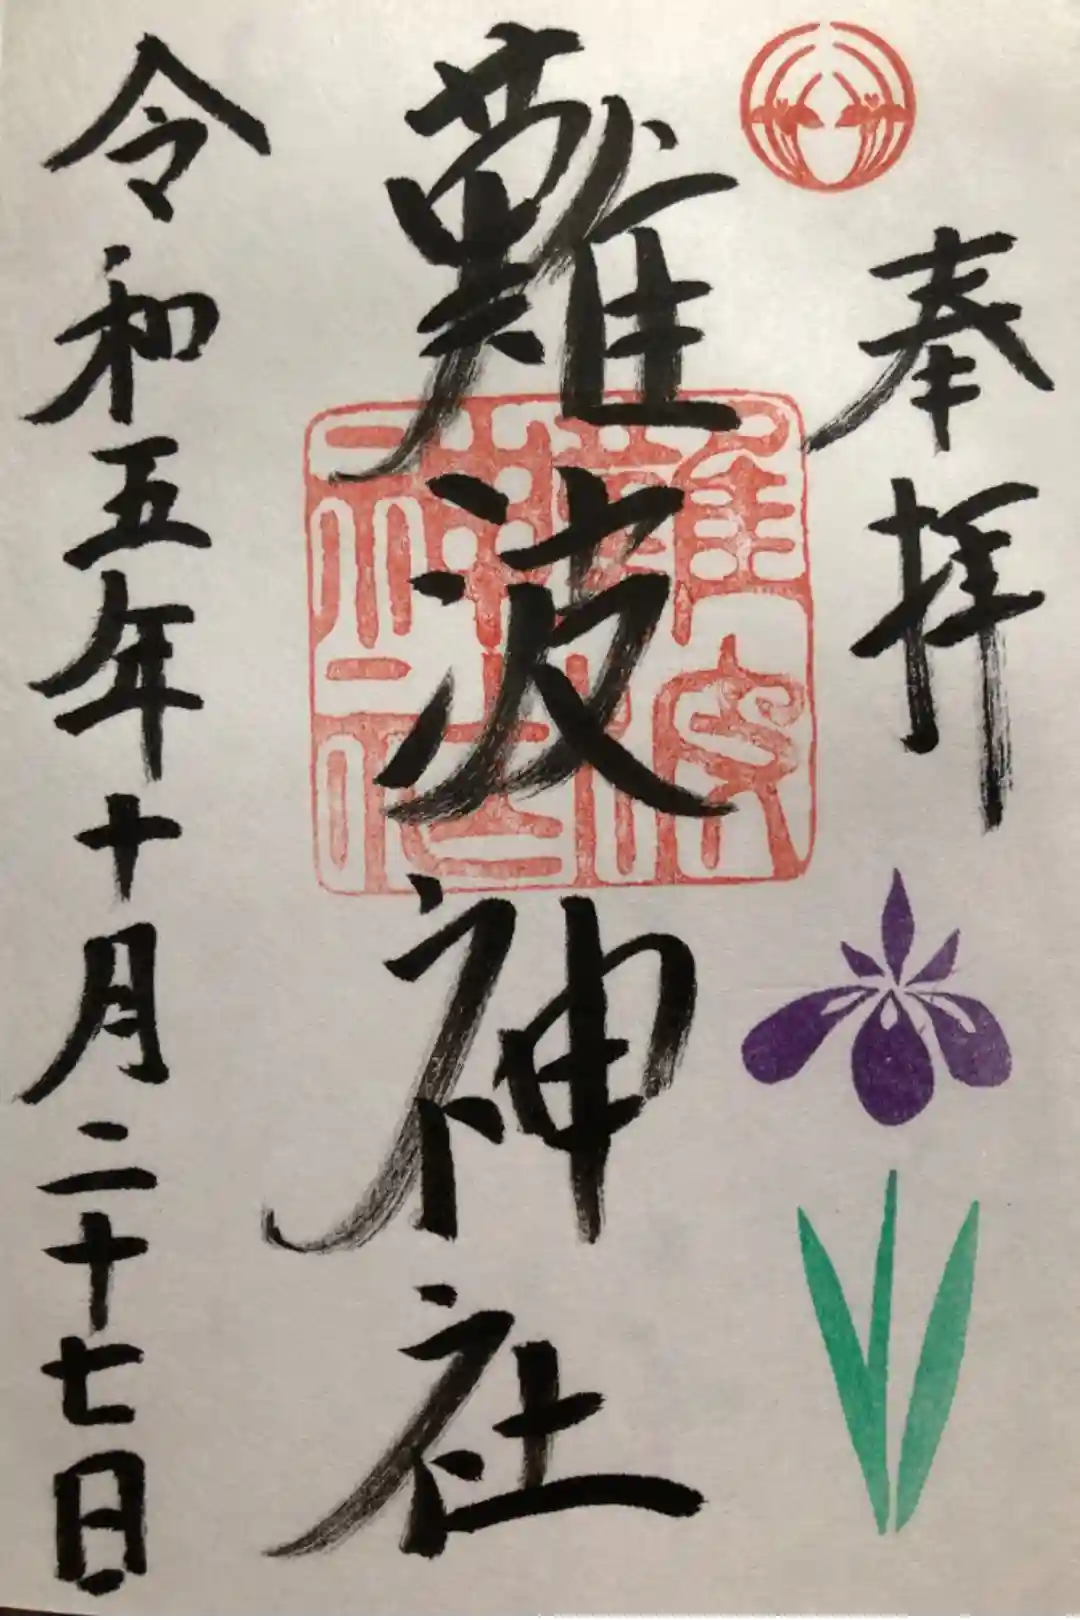 奉拝
難波神社
難波神社
令和五年十月二十七日